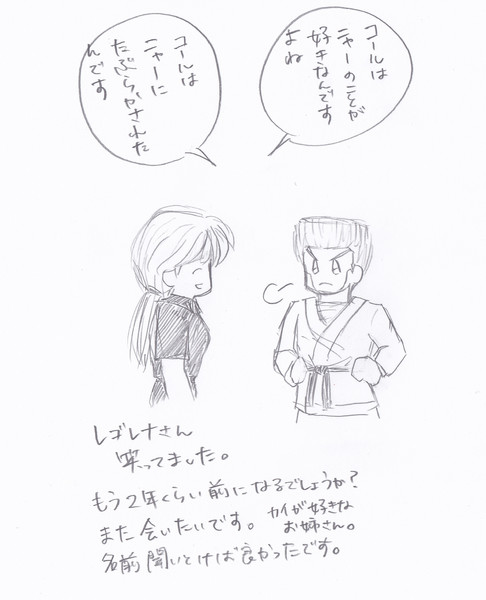 コールは
ニャーのことが
好きなんです
よね
コールは
ニャーに
たぶらかされた
んです
レギレナさん
笑ってました。
もう2年くらい前になるでしょうか?
また会いたいです。カイが好きな
お姉さん。
名前聞いとけば良かったです。